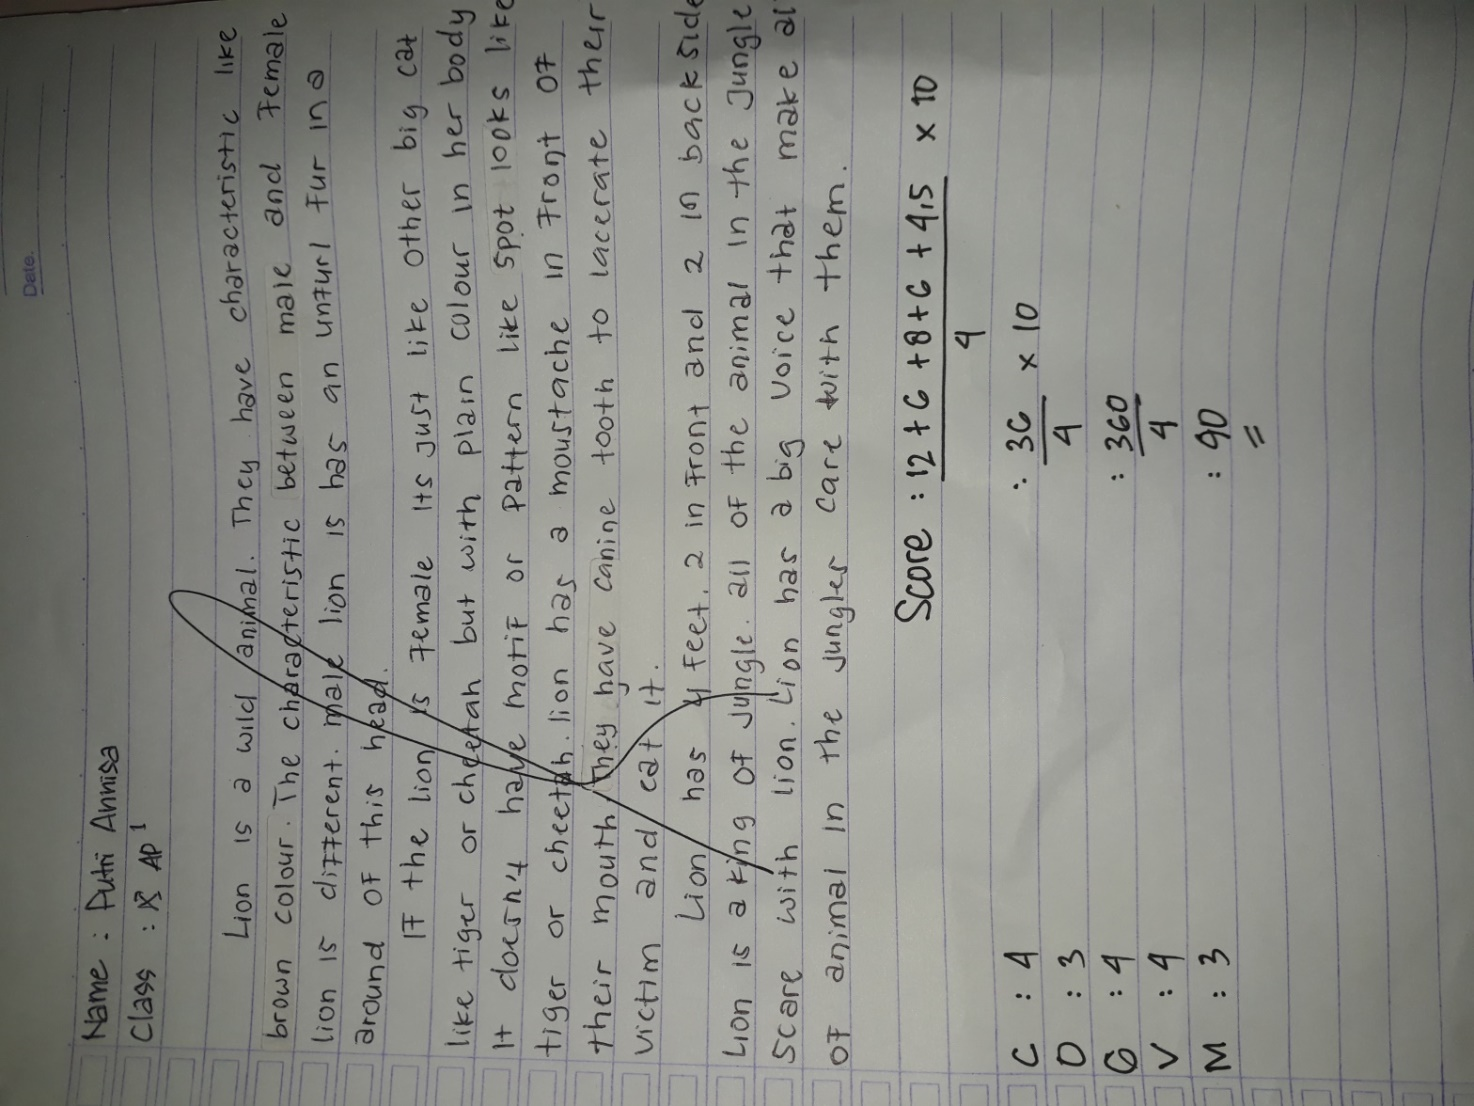 Date.
Name : Putri Annisa
Class : X AP1
Lion is a wild animal. They have characteristic like
brown colour. The characteristic between male and female
lion is different. male lion is has an unfurl fur in a
around of this head.
If the lion is female its just like other big cat
like tiger or cheetah but with plain colour in her body
It doesn't have motif or pattern like spot looks like
tiger or cheetah. lion has a moustache in front of
their mouth. They have canine tooth to lacerate their
victim and eat it.
Lion has 4 feet. 2 in front and 2 in back side
Lion is a king of jungle. all of the animal in the jungle
scare with lion. Lion has a big voice that make al
of animal in the jungles care with them.
Score : 12 + 6 + 8 + 6 + 4,5 x 10
4
C : 4
: 36 x 10
4
O : 3
G : 4
: 360
4
V : 4
M : 3
: 90
=